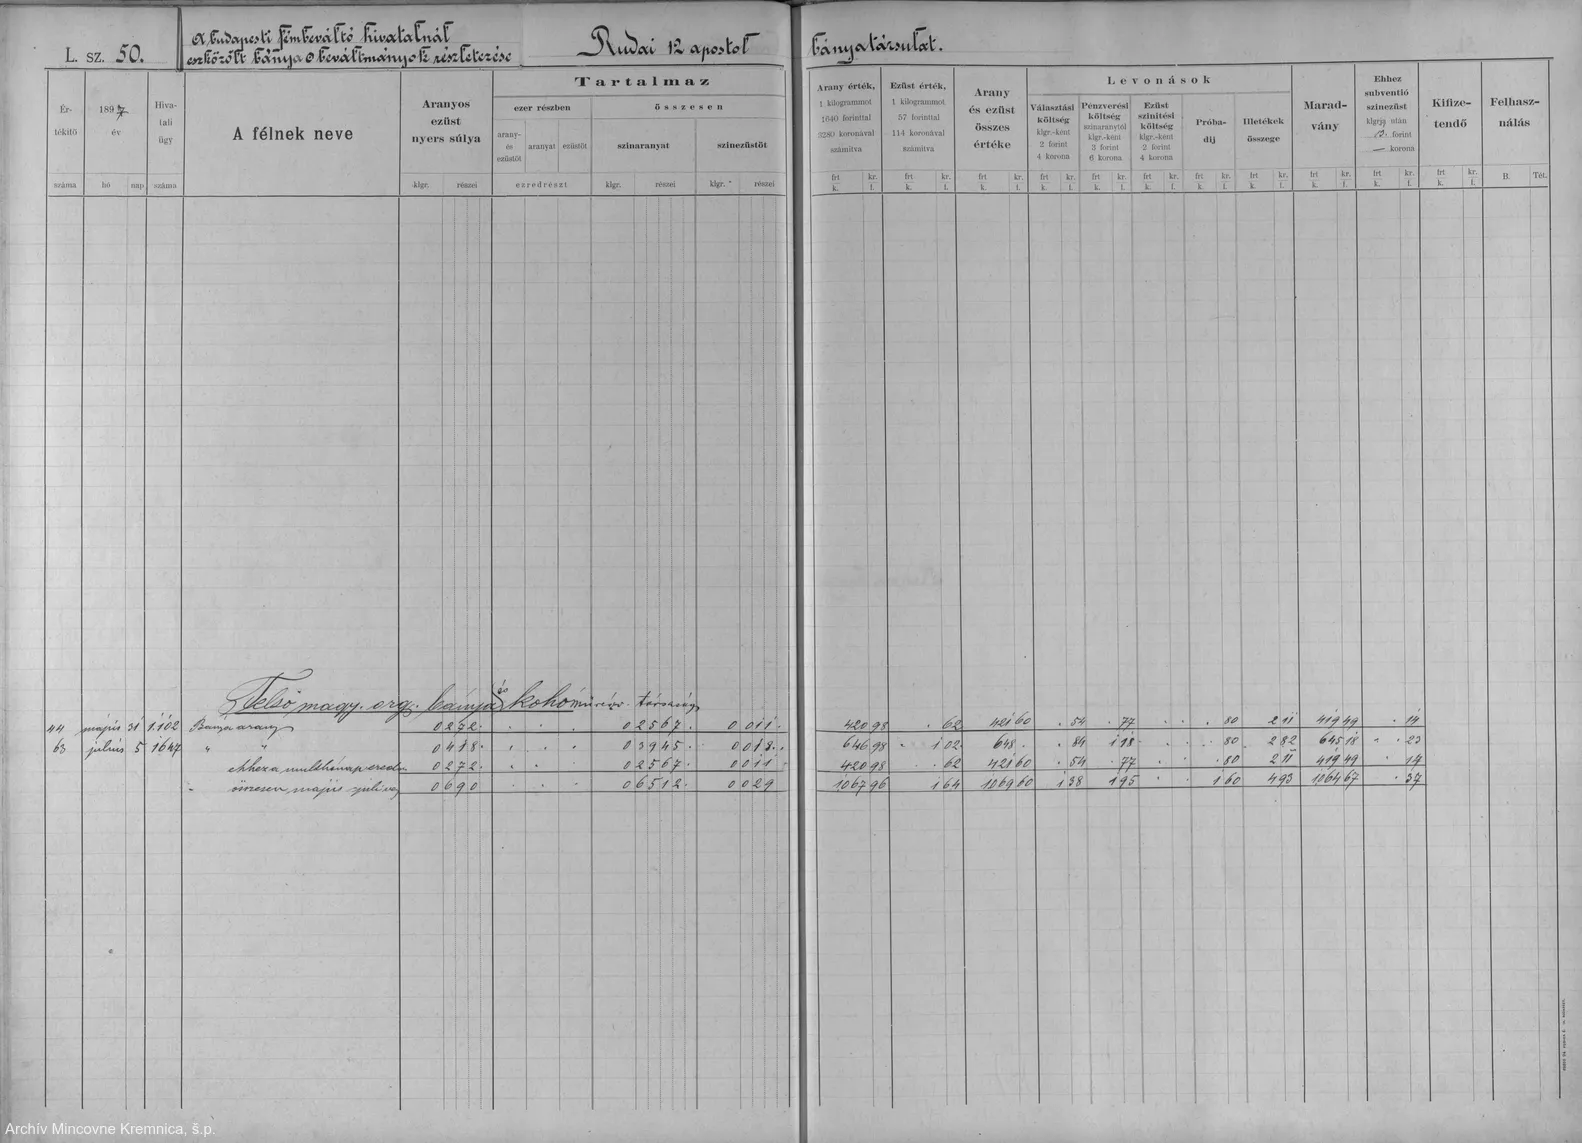 L. sz. 50.
A budapesti fémbeváltó hivatalnál
eszközölt bánya beváltmányok részletezése
Rudai 12 apostol bányatársulat.
Értékítő száma
1897 év
hó nap
Hivatali ügy száma
A félnek neve
Aranyos ezüst nyers súlya
klgr. részei
Tartalmaz
ezer részben
összesen
arany- és ezüstöt
aranyat
ezüstöt
ezredrészt
színaranyat
klgr. részei
színezüstöt
klgr. részei
Arany érték, 1 kilogrammot 1640 forinttal 3280 koronával számítva
Ezüst érték, 1 kilogrammot 57 forinttal 114 koronával számítva
Arany és ezüst összes értéke
Levonások
Választási költség klgr.-ként 2 forint 4 korona
Pénzverési költség színaranytól klgr.-ként 3 forint 6 korona
Ezüst színítési költség klgr.-ként 2 forint 4 korona
Próbadíj
Illetékek összege
Maradvány
Ehhez subventió színezüst klgrja után forint korona
Kifizetendő
Felhasználás
frt kr.
k. f.
B. Tét.
Felső magy. org. bánya és kohó társaság
44 május 31 1102 Bánya arany 0 272 0 2567 0 011 420 98 62 421 60 54 77 80 2 11 419 49 14
63 július 5 1647 " " 0 418 0 3945 0 018 646 98 1 02 648 84 1 18 80 2 82 645 18 23
0 272 0 2567 0 011 420 98 62 421 60 54 77 80 2 11 419 49 14
összesen május 0 690 0 6512 0 029 1067 96 1 64 1069 60 1 38 1 95 1 60 4 93 1064 67 37
Archív Mincovne Kremnica, š.p.